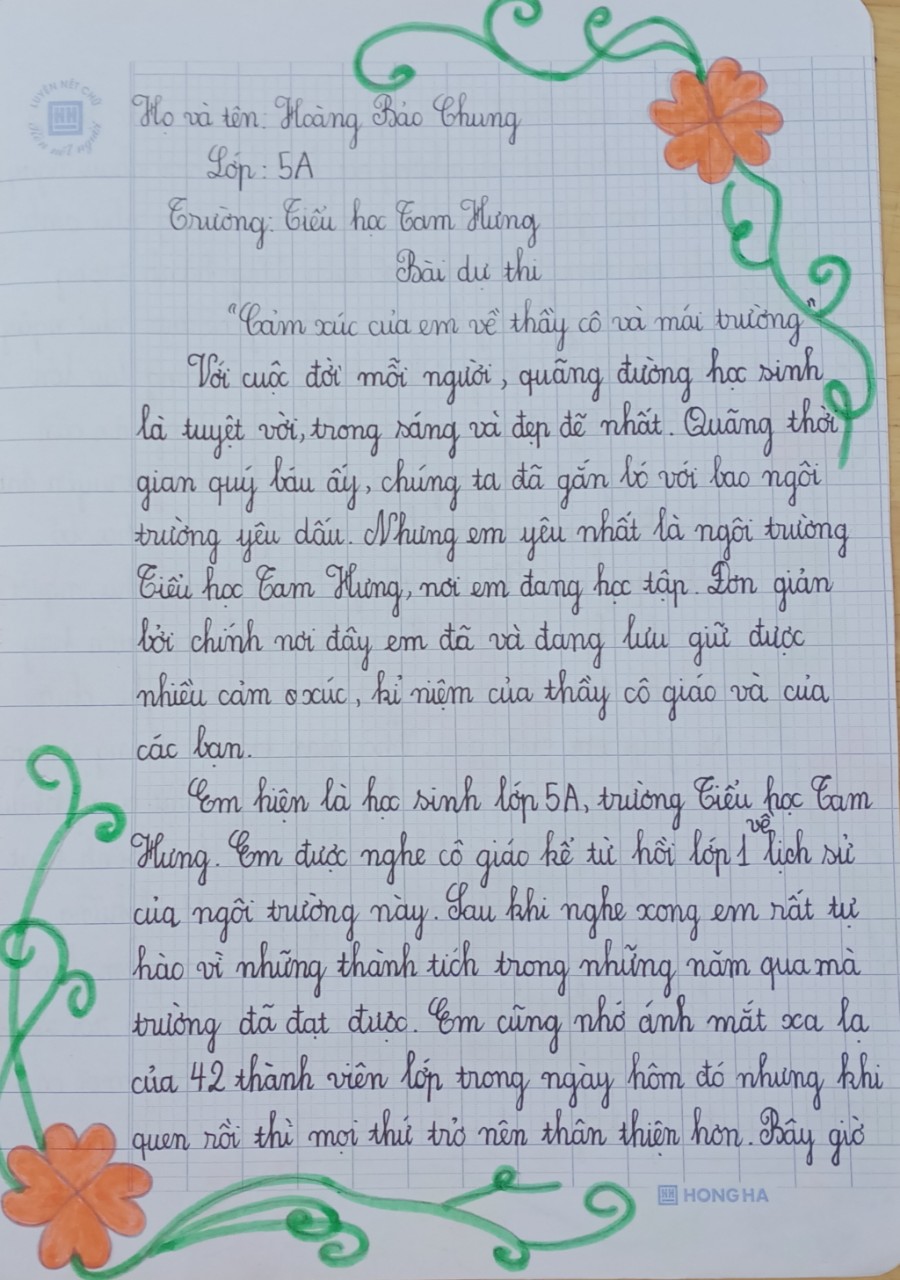 LUYỆN NÉT CHỮ
HH
Rèn nết người
Họ và tên: Hoàng Bảo Chung
Lớp: 5A
Trường: Tiểu học Tam Hưng
Bài dự thi
"Cảm xúc của em về thầy cô và mái trường"
Với cuộc đời mỗi người, quãng đường học sinh
là tuyệt vời, trong sáng và đẹp đẽ nhất. Quãng thời
gian quý báu ấy, chúng ta đã gắn bó với bao ngôi
trường yêu dấu. Nhưng em yêu nhất là ngôi trường
Tiểu học Tam Hưng, nơi em đang học tập. Đơn giản
bởi chính nơi đây em đã và đang lưu giữ được
nhiều cảm xúc, kỉ niệm của thầy cô giáo và của
các bạn.
Em hiện là học sinh lớp 5A, trường Tiểu học Tam
Hưng. Em được nghe cô giáo kể từ hồi lớp 1 về lịch sử
của ngôi trường này. Sau khi nghe xong em rất tự
hào vì những thành tích trong những năm qua mà
trường đã đạt được. Em cũng nhớ ánh mắt xa lạ
của 42 thành viên lớp trong ngày hôm đó nhưng khi
quen rồi thì mọi thứ trở nên thân thiện hơn. Bây giờ
HH HONG HA